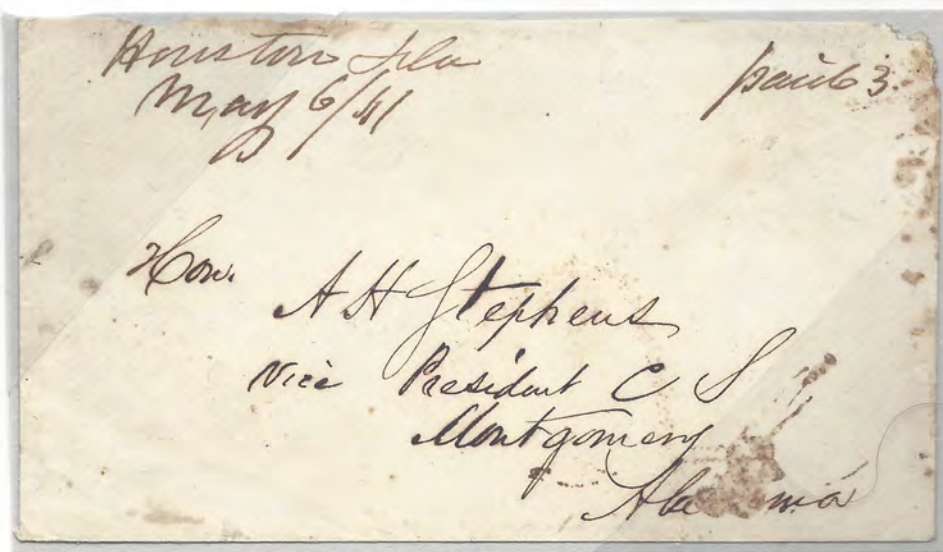 Houston Fla
May 6/61
paid 3
Hon.
A H Stephens
Vice President C S
Montgomery
Alabama